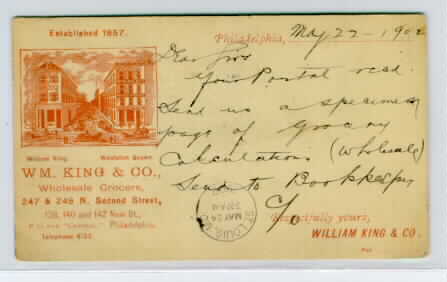 Established 1857.
Philadelphia, May 22 - 1902
Dear Sirs
Your Postal recd.
Send us a specimen
page of Grocery
Calculations (Wholesale)
Send to Bookkeeper
c/o
William King. Winfield Brown.
WM. KING & CO.,
Wholesale Grocers,
247 & 249 N. Second Street,
138, 140 and 142 New St.,
Philadelphia.
Telephone
ST. LOUIS,
MAY 24
Respectfully yours,
WILLIAM KING & CO.
Per